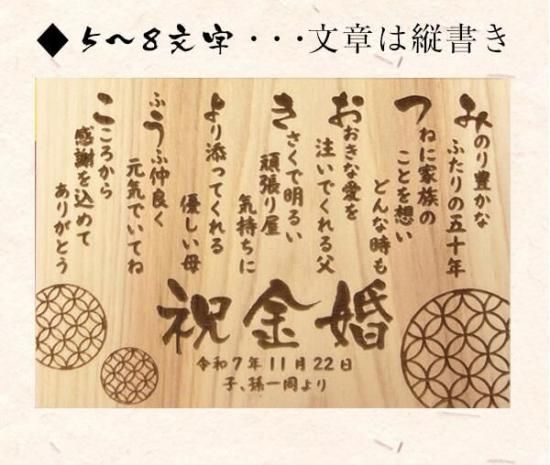 ◆5〜8文字・・・文章は縦書き
みのり豊かな
ふたりの五十年
つねに家族の
ことを想い
どんな時も
おおきな愛を
注いでくれる父
きさくで明るい
頑張り屋
気持ちに
より添ってくれる
優しい母
ふうふ仲良く
元気でいてね
こころから
感謝を込めて
ありがとう
祝金婚
令和7年11月22日
子、孫一同より